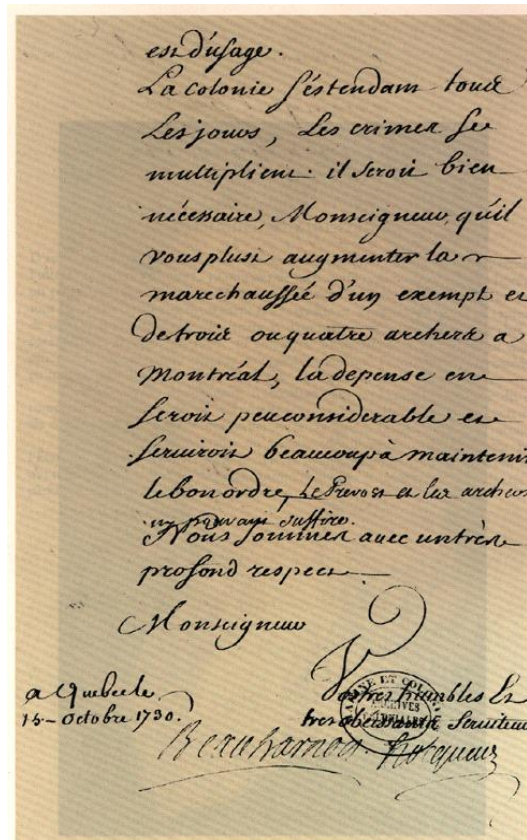 est d'usage.
La Colonie s'estendant tous
Les jours, Les crimes se
multiplient. il seroit bien
nécessaire, Monseigneur, qu'il
vous plust augmenter la
marechaussée d'un exempt et
de trois ou quatre archers a
Montréal, la depense en
seroit peu considerable et
serviroit beaucoup à maintenir
le bon ordre, Le Prevost et les archers
n'y pouvant suffire.
Nous sommes avec un très
profond respect
Monseigneur
a Quebec le
15 - Octobre 1730.
Vos tres humbles Et
tres obeissants Serviteurs
Beauharnois Hocquart
ARCHIVES